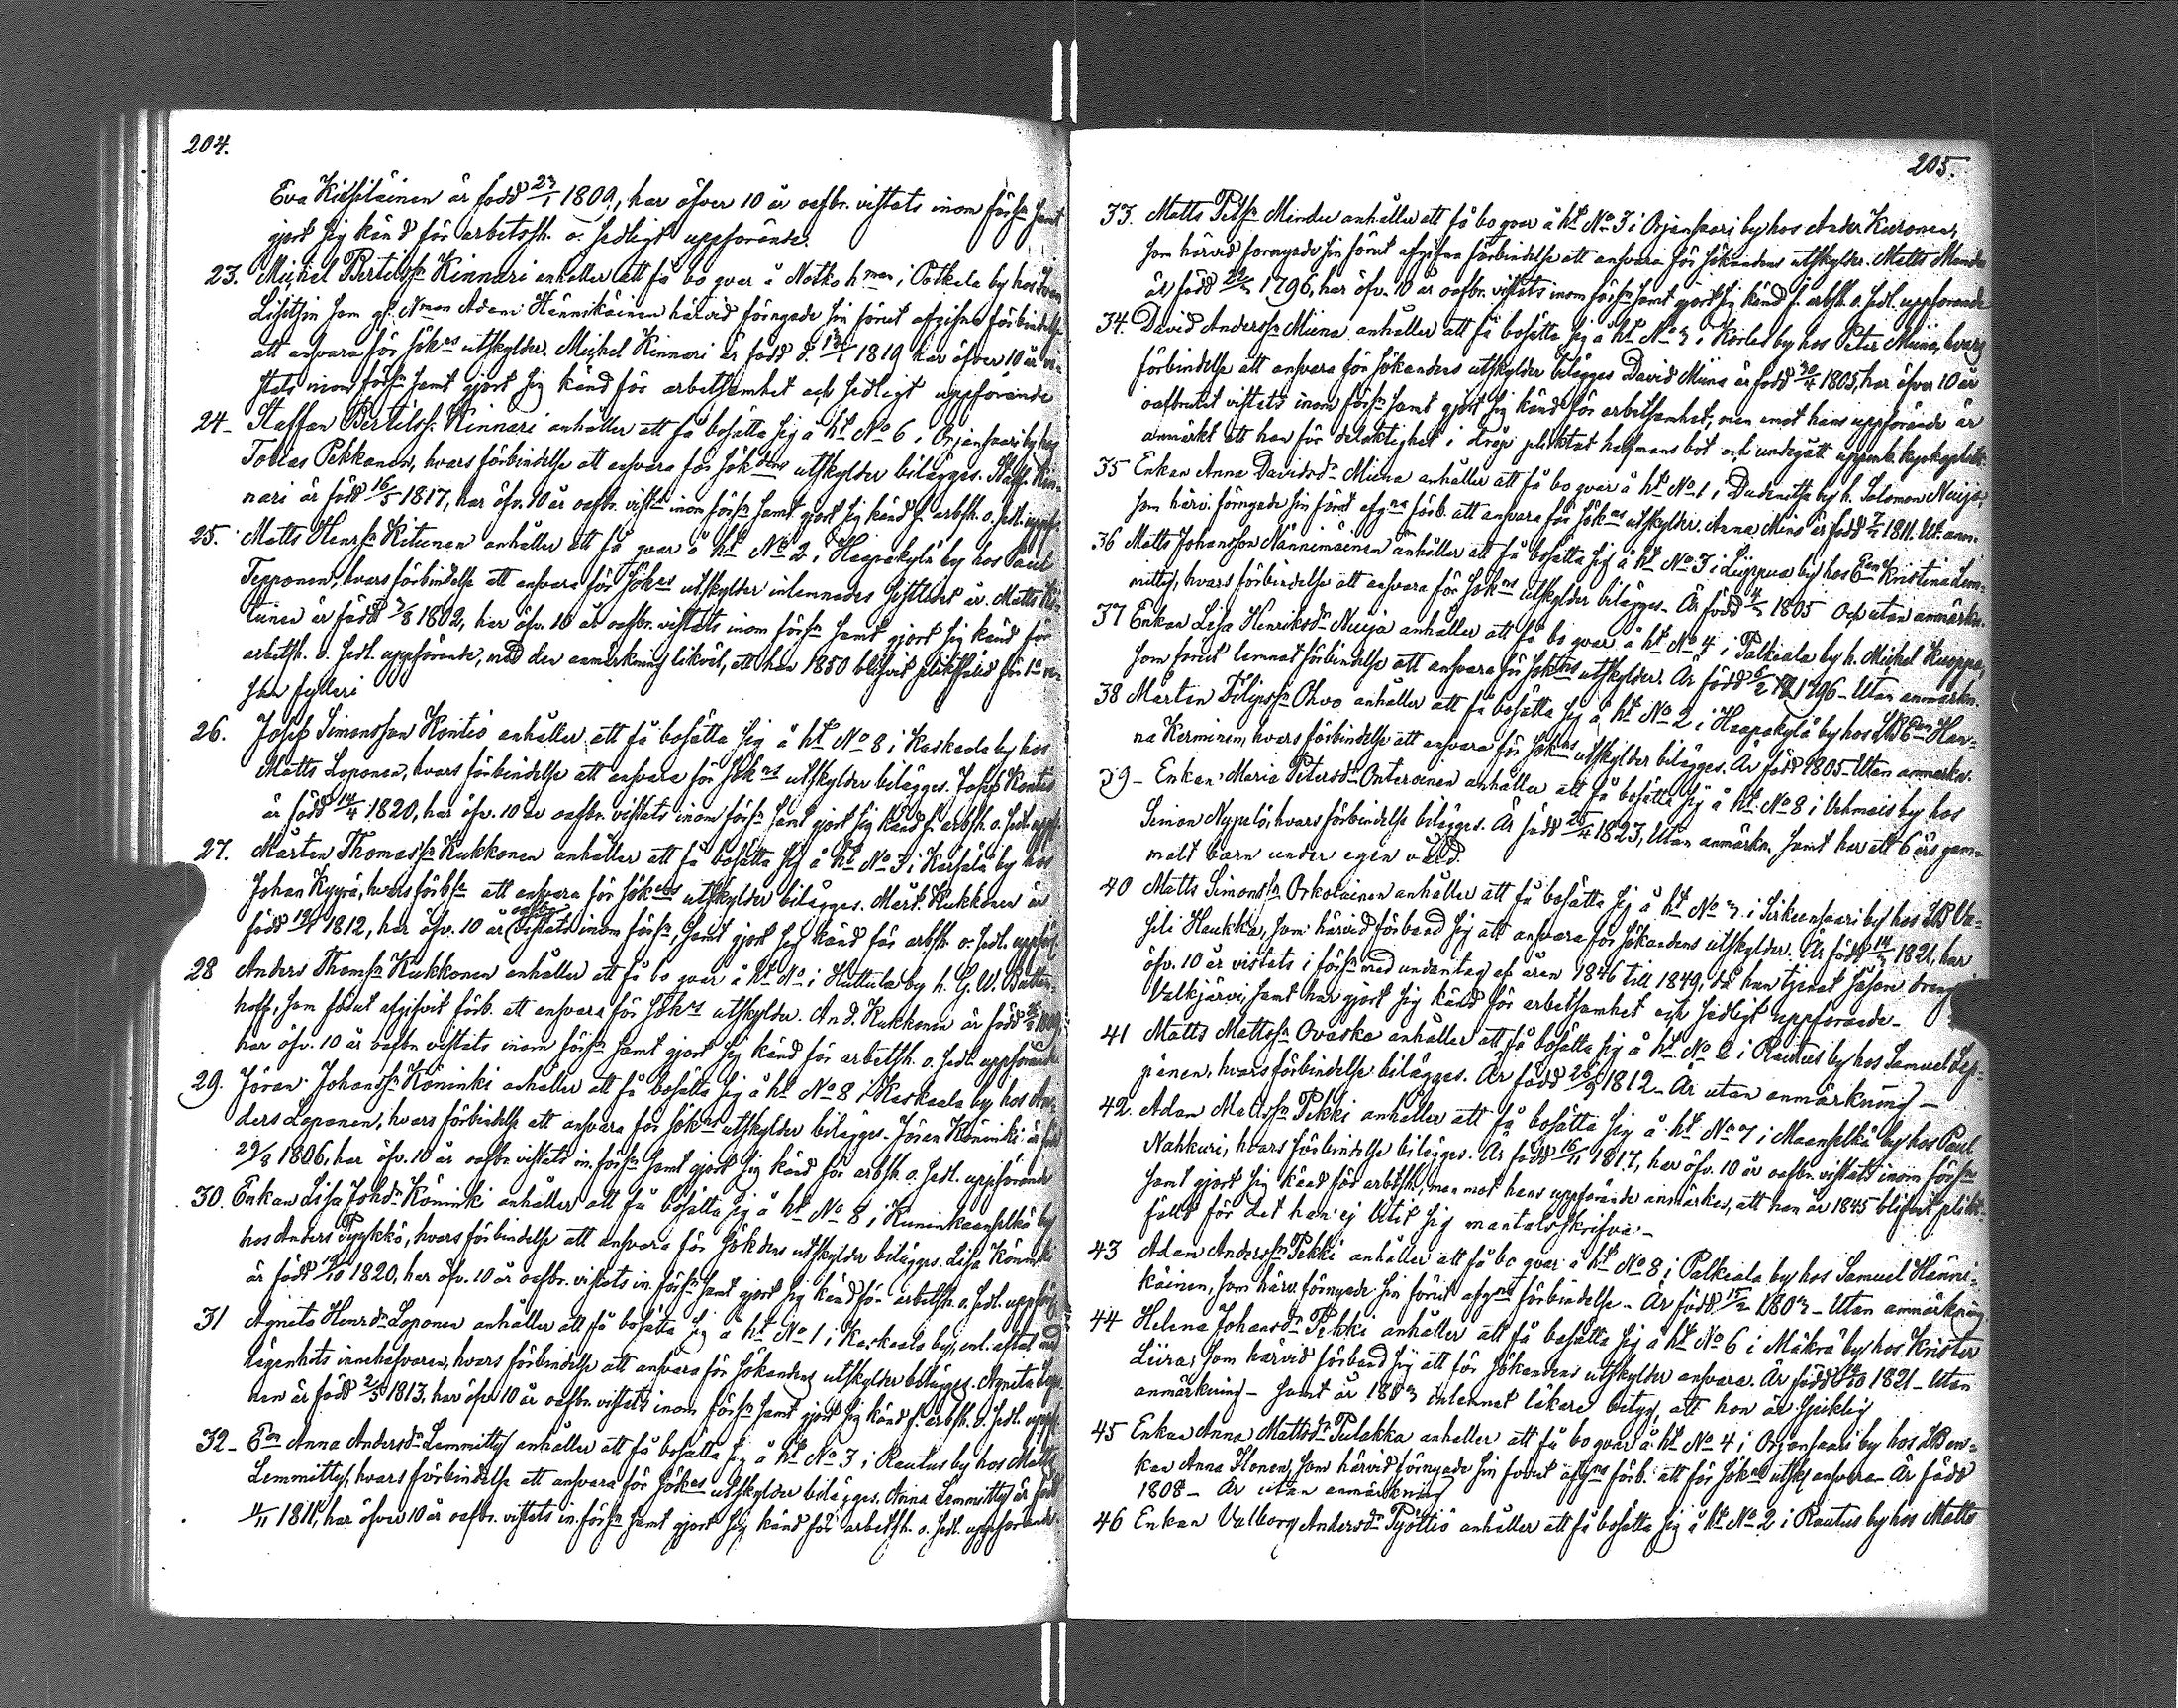 204.
Eva Kiesiläinen är född 23/1 1809, har öfver 10 år oafbr. vistats inom förs:n samt
gjort sig känd för arbetssh. o. sedligt uppförande.
23. Michel Bertilss:n Kinnari anhåller att få bo qvar å Notko h:man i Potkela by hos Ivan
som gl. N:man Adam Hännikäinen härvid förnyade sin förut afgifna förbindelse
att ansvara för sök:es utskylder. Michel Kinnari är född d. 13/1 1819 har öfver 10 år vi-
stats inom förs:n samt gjort sig känd för arbetsamhet och sedligt uppförande
24- Staffan Bertilss. Kinnari anhåller att få bosätta sig å h:t N:o 6 i Orjansaari by hos
Tobias Pekkanen, hvars förbindelse att ansvara för sök:dens utskylder bilägges. Staff. Kin-
nari är född 16/5 1817, har öfv. 10 år oafbr. vist:ts inom förs:n samt gjort sig känd f. arbsh. o. sedl. uppf.
25. Matts Henrs:n Kitunen anhåller att få qvar å h:t N:o 2 i Haapakylä by hos Paul
Tepponen, hvars förbindelse att ansvara för sök:es utskylder inlemnades sistledet år. Matts Ki-
tunen är född 7/8 1802, har öfv. 10 år oafbr. vistats inom förs:n samt gjort sig känd för
arbetsh. o. sedl. uppförande, med den anmärkning likväl, att han 1850 blifvit pliktfälld för 1:a re-
san fylleri
26. Josef Simonsson Kontio anhåller att få bosätta sig å h:t N:o 8 i Kaskaala by hos
Matts Loponen, hvars förbindelse att ansvara för sök:es utskylder bilägges. Josef Kontio
är född 14/4 1820, har öfv. 10 år oafbr. vistats inom förs:n samt gjort sig känd f. arbsh. o. sedl. uppf.
27. Mårten Thomass:n Kukkonen anhåller att få bosätta sig å h:t N:o 3 i Karsala by hos
Johan Kyyrä, hvars förb:se att ansvara för sök:es utskylder bilägges. Mårt. Kukkonen är
född 1812, har öfv. 10 år oafbr. vistats inom förs:n, samt gjort sig känd för arbsh. o. sedl. uppför.
28 Anders Thoms:n Kukkonen anhåller att få bo qvar å h:t N:o i Huttula by h. G. W. Batten-
hoff, som förut afgifvit förb. att ansvara för sök:es utskylder. And. Kukkonen är född 1809
har öfv. 10 år oafbr. vistats inom förs:n samt gjort sig känd för arbetsh. o. sedl. uppförande
29. Jöran Johanss:n Köninki anhåller att få bosätta sig å h:t N:o 8 i Kaskaala by hos An-
ders Loponen, hvars förbindelse att ansvara för sök:es utskylder bilägges. Jöran Köninki är född
29/8 1806, har öfv. 10 år oafbr. vistats in. förs:n samt gjort sig känd för arbsh. o. sedl. uppförande
30. Enkan Lisa Joh:dr Köninki anhåller att få bosätta sig å h:t N:o 8 i Kuninkaanselkä by
hos Anders Pyykkö, hvars förbindelse att ansvara för sökdens utskylder bilägges. Lisa Köninki
är född 1820, har öfv. 10 år oafbr. vistats in. förs:n samt gjort sig känd för arbetsh. o. sedl. uppför.
31 Agneta Henrsd:r Loponen anhåller att få bosätta sig å h:t N:o 1 i Kaskaala by, enl. aftal med
lägenhets innehafvaren, hvars förbindelse att ansvara för sökandens utskylder bilägges. Agneta Lopo-
nen är född 2/5 1813, har öfver 10 år oafbr. vistats inom förs:n samt gjort sig känd f. arbsh. o. sedl. uppf.
32- E:an Anna Andersd:r Lemmitty anhåller att få bosätta sig å h:t N:o 3 i Rautus by hos Matts
Lemmitty, hvars förbindelse att ansvara för sök:es utskylder bilägges. Anna Lemmitty är född
/11 1811, har öfver 10 år oafbr. vistats in. förs:n samt gjort sig känd för arbetsh. o. sedl. uppförande.
205.
33. Matts Pets:n Mindru anhåller att få bo qvar å h:t N:o 3 i Orjansaari by hos Ander Kuronen,
som härvid förnyade sin förut afgifna förbindelse att ansvara för sökandens utskylder. Matts Mindru
är född 1796, har öfv. 10 år oafbr. vistats inom förs:n samt gjort sig känd f. arbsh. o. sedl. uppförande
34. David Anderss:n Miina anhåller att få bosätta sig å h:t N:o 3 i Korles by hos Peter Miina, hvars
förbindelse att ansvara för sökandens utskylder bilägges David Miina är född 30/4 1805, har öfver 10 år
oafbrutet vistats inom förs:n samt gjort sig känd för arbetsamhet, men emot hans uppförande är
anmärkt att han för delaktighet i dråp pliktat halfmans bot och undergått uppenb. kyrkoplikt.
35 Enkan Anna Davidsd:r Miina anhåller att få bo qvar å h:t N:o 1 i by h. Salomon Nuija,
som härv. förnyade sin förut afg:na förb. att ansvara för sök:es utskylder. Anna Mina är född 1811. Ut. anm.
36 Matts Johansson Nännimäinen anhåller att få bosätta sig å h:t N:o 3 i Liippua by hos E:an Kristina Lem-
mitty, hvars förbindelse att ansvara för sök:ns utskylder bilägges. Är född 1805 Och utan anmärkn.
37 Enkan Lisa Henriksd:r Nuija anhåller att få bo qvar å h:t N:o 4 i Palkeala by h. Michel Kuoppa,
som förut lemnat förbindelse att ansvara för sök:des utskylder. Är född 1796 - Utan anmärkn.
38 Mårten Filipss:n Ohvo anhåller att få bosätta sig å h:t N:o 2 i Haapakylä by hos LB E:an Han-
na Karminen, hvars förbindelse att ansvara för sök:ns utskylder bilägges. Är född 1805 - Utan anmärkn.
39 - Enkan Maria Petersd:r Onteroinen anhåller att få bosätta sig å h:t N:o 8 i Vehmais by hos
Simon Nypelö, hvars förbindelse bilägges. Är född 25/4 1823, Utan anmärkn. samt har ett 6 års gam-
malt barn under egen vård.
40 Matts Simons:n Orkolainen anhåller att få bosätta sig å h:t N:o 3 i Sirkeensaari by hos LB Va-
sili Haukka, som härvid förband sig att ansvara för sökandens utskylder. Är född 1821, har
öfv. 10 år vistats i förs:n med undantag af åren 1846 till 1849, då han tjenat såsom dreng i
Valkjärvi, samt har gjort sig känd för arbetsamhet och sedligt uppförande -
41 Matts Mattss:n Ovaska anhåller att få bosätta sig å h:t N:o 2 i Rautus by hos Samuel Lep-
pänen, hvars förbindelse bilägges. Är född 26/9 1812 - Är utan anmärkning -
42. Adam Matss:n Pekki anhåller att få bosätta sig å h:t N:o 7 i Maanselkä by hos Paul
Nahkuri, hvars förbindelse bilägges. Är född 16/11 1817, har öfv. 10 år oafbr. vistats inom förs:n
samt gjort sig känd för arbtsh., men mot hans uppförande anmärkes, att han år 1845 blifvit plikt-
fälld för det han ej låtit sig mantalsskrifva. -
43 Adam Anderss:n Pekki anhåller att få bo qvar å h:t N:o 8 i Palkeala by hos Samuel Hänni-
käinen, som härv. förnyade sin förut afg:na förbindelse - Är född 15/2 1803 - Utan anmärkning
44 Helena Johansd:r Pekki anhåller att få bosätta sig å h:t N:o 6 i Mäkrä by hos Krister
Liira, som härvid förband sig att för sökandens utskylder ansvara. Är född 18/10 1821 - Utan
anmärkning - samt år 1853 inlemnat läkare betyg, att hon är sjuklig
45 Enkan Anna Mattsd:r Pulakka anhåller att få bo qvar å h:t N:o 4 i Orjansaari by hos LB en-
kan Anna Ilonen, som härvid förnyade sin förut afg:na förb. att för sök:ns utsky. ansvara - Är född
1808 - Är utan anmärkning
46 Enkan Valborg Andersd:r Pyöttiö anhåller att få bosätta sig å h:t N:o 2 i Rautus by hos Matts